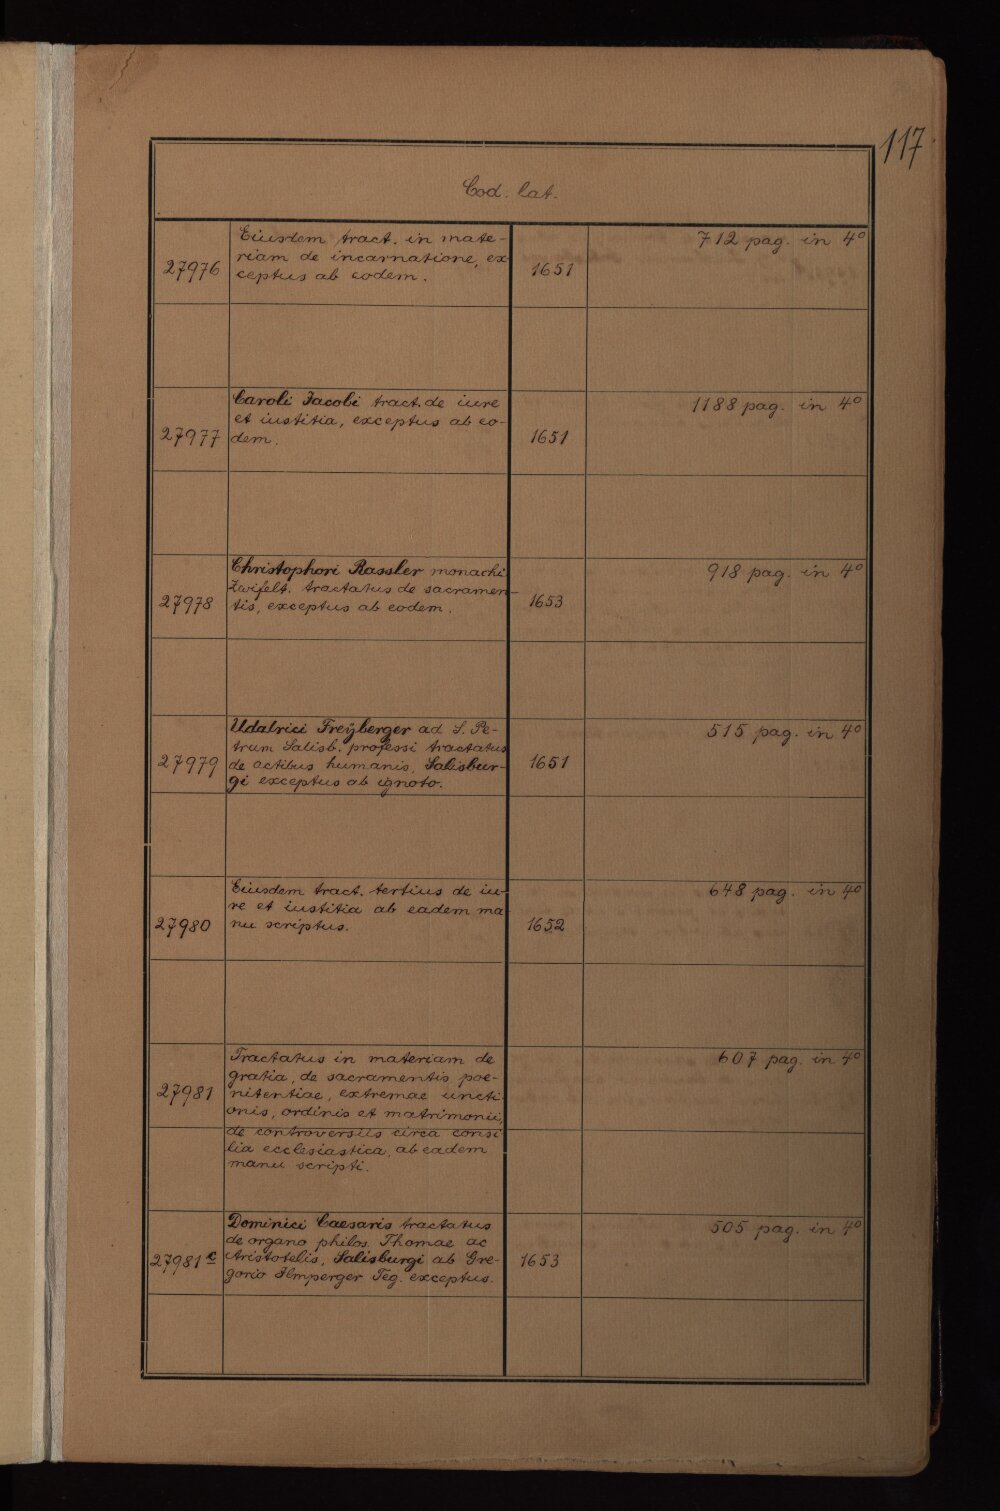 117
Cod. lat.
27976
Eiusdem tract. in mate-
riam de incarnatione, ex
ceptus ab eodem.
1651
712 pag. in 4º
27977
Caroli Jacobi tract. de iure
et iustitia, exceptus ab eo-
dem.
1651
1188 pag. in 4º
27978
Christophori Rassler monachi
Zwifelt. tractatus de sacramen-
tis, exceptus ab eodem.
1653
918 pag. in 4º
27979
Udalrici Freÿberger ad S. Pe-
trum Salisb. professi tractatus
de actibus humanis, Salisbur-
gi exceptus ab ignoto.
1651
515 pag. in 4º
27980
Eiusdem tract. tertius de iu-
re et iustitia ab eadem ma
nu scriptus.
1652
648 pag. in 4º
27981
Tractatus in materiam de
gratia, de sacramentis poe-
nitentiae, extremae uncti
onis, ordinis et matrimonii,
de controversiis circa consi
lia ecclesiastica, ab eadem
manu scripti.
607 pag. in 4º
27981 c
Dominici Caesaris tractatus
de organo philos. Thomae ac
Aristotelis, Salisburgi ab Gre-
gorio Ilmperger Teg. exceptus.
1653
505 pag. in 4º